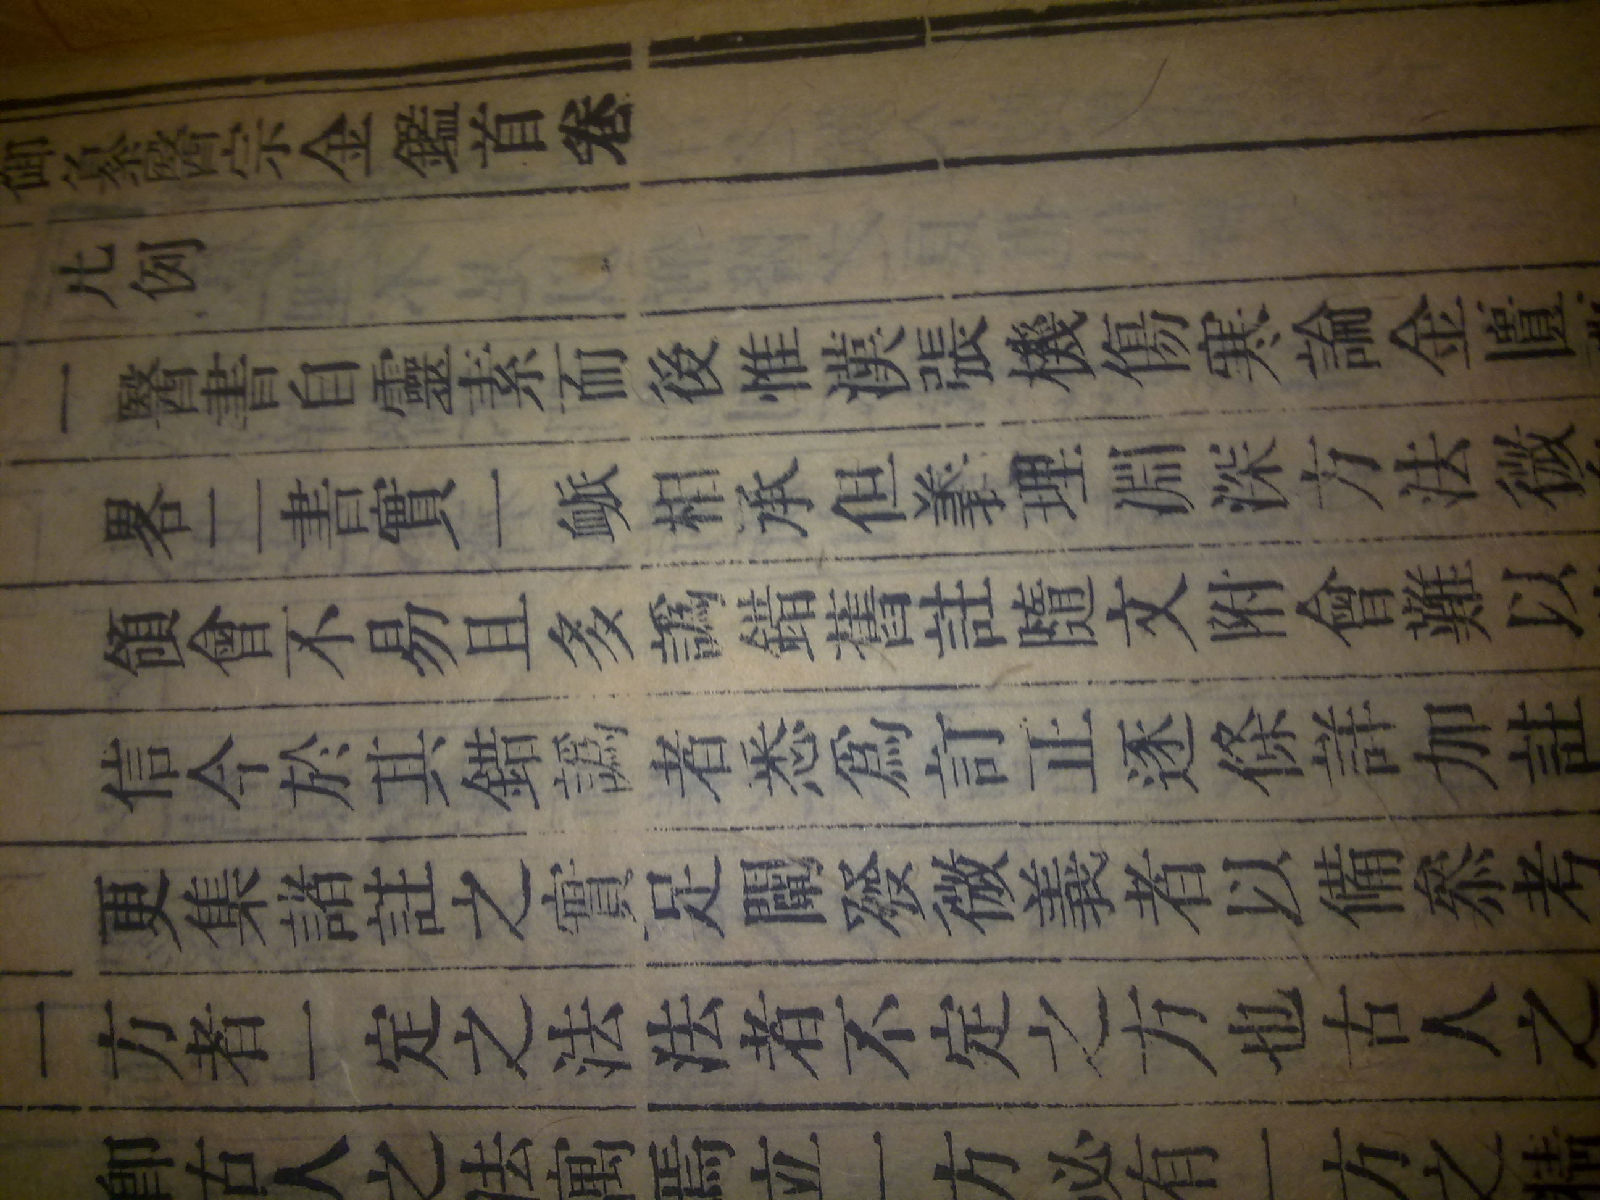 御纂醫宗金鑑首卷
凡例
一醫書自靈素而後惟漢張機傷寒論金匱
畧二書實一脈相承但義理淵深方法微
領會不易且多譌錯舊註隨文附會難以
信今於其錯譌者悉爲訂正逐條詳加註
更集諸註之實足闡發微義者以備參考
一方者一定之法法者不定之方也古人之
卽古人之法寓焉立一方必有一方之